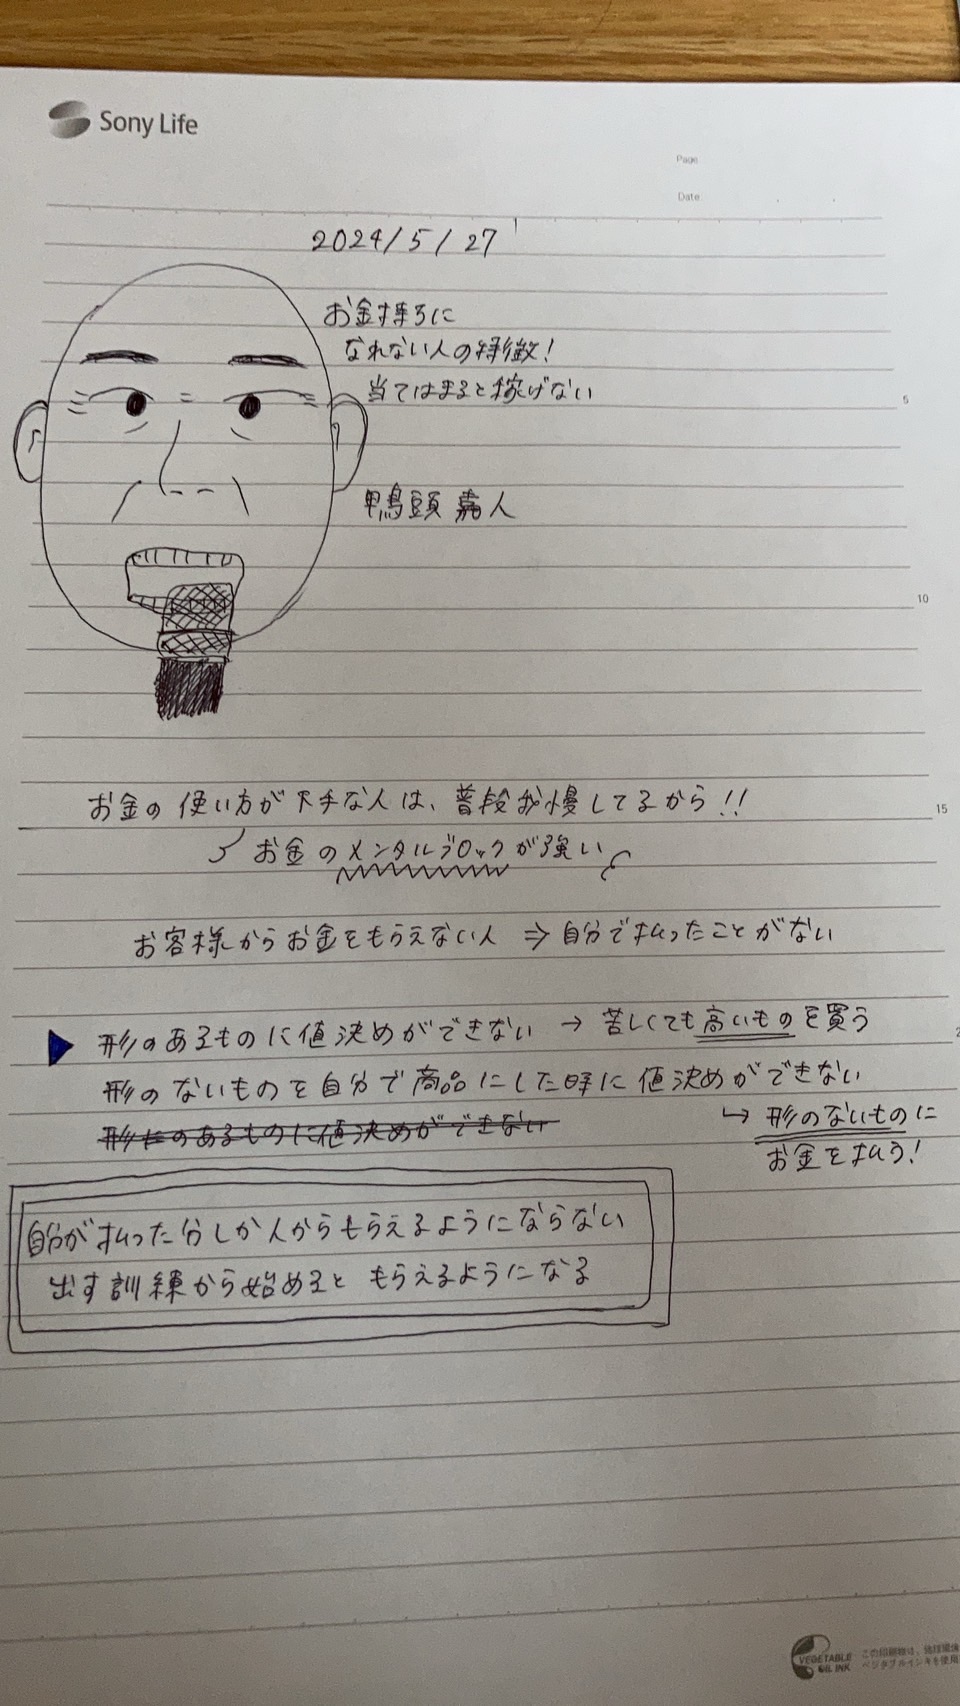 Sony Life
Page
Date
2024/5/27
お金持ちに
なれない人の特徴!
当てはまると稼げない
5
鴨頭 嘉人
10
お金の使い方が下手な人は、普段我慢してるから!!
15
お金のメンタルブロックが強い
お客様からお金をもらえない人 ⇒ 自分で払ったことがない
▶ 形のあるものに値決めができない → 苦しくても高いものを買う
形のないものを自分で商品にした時に値決めができない
形にのあるものに値決めができない
↳ 形のないものに
お金を払う!
自分が払った分しか人からもらえるようにならない
出す訓練から始めると もらえるようになる
VEGETABLE
OIL INK
この印刷物は、
ベジタブルインキを使用